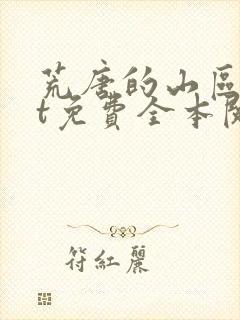 荒唐的山區
t免費全本閱
符紅麗